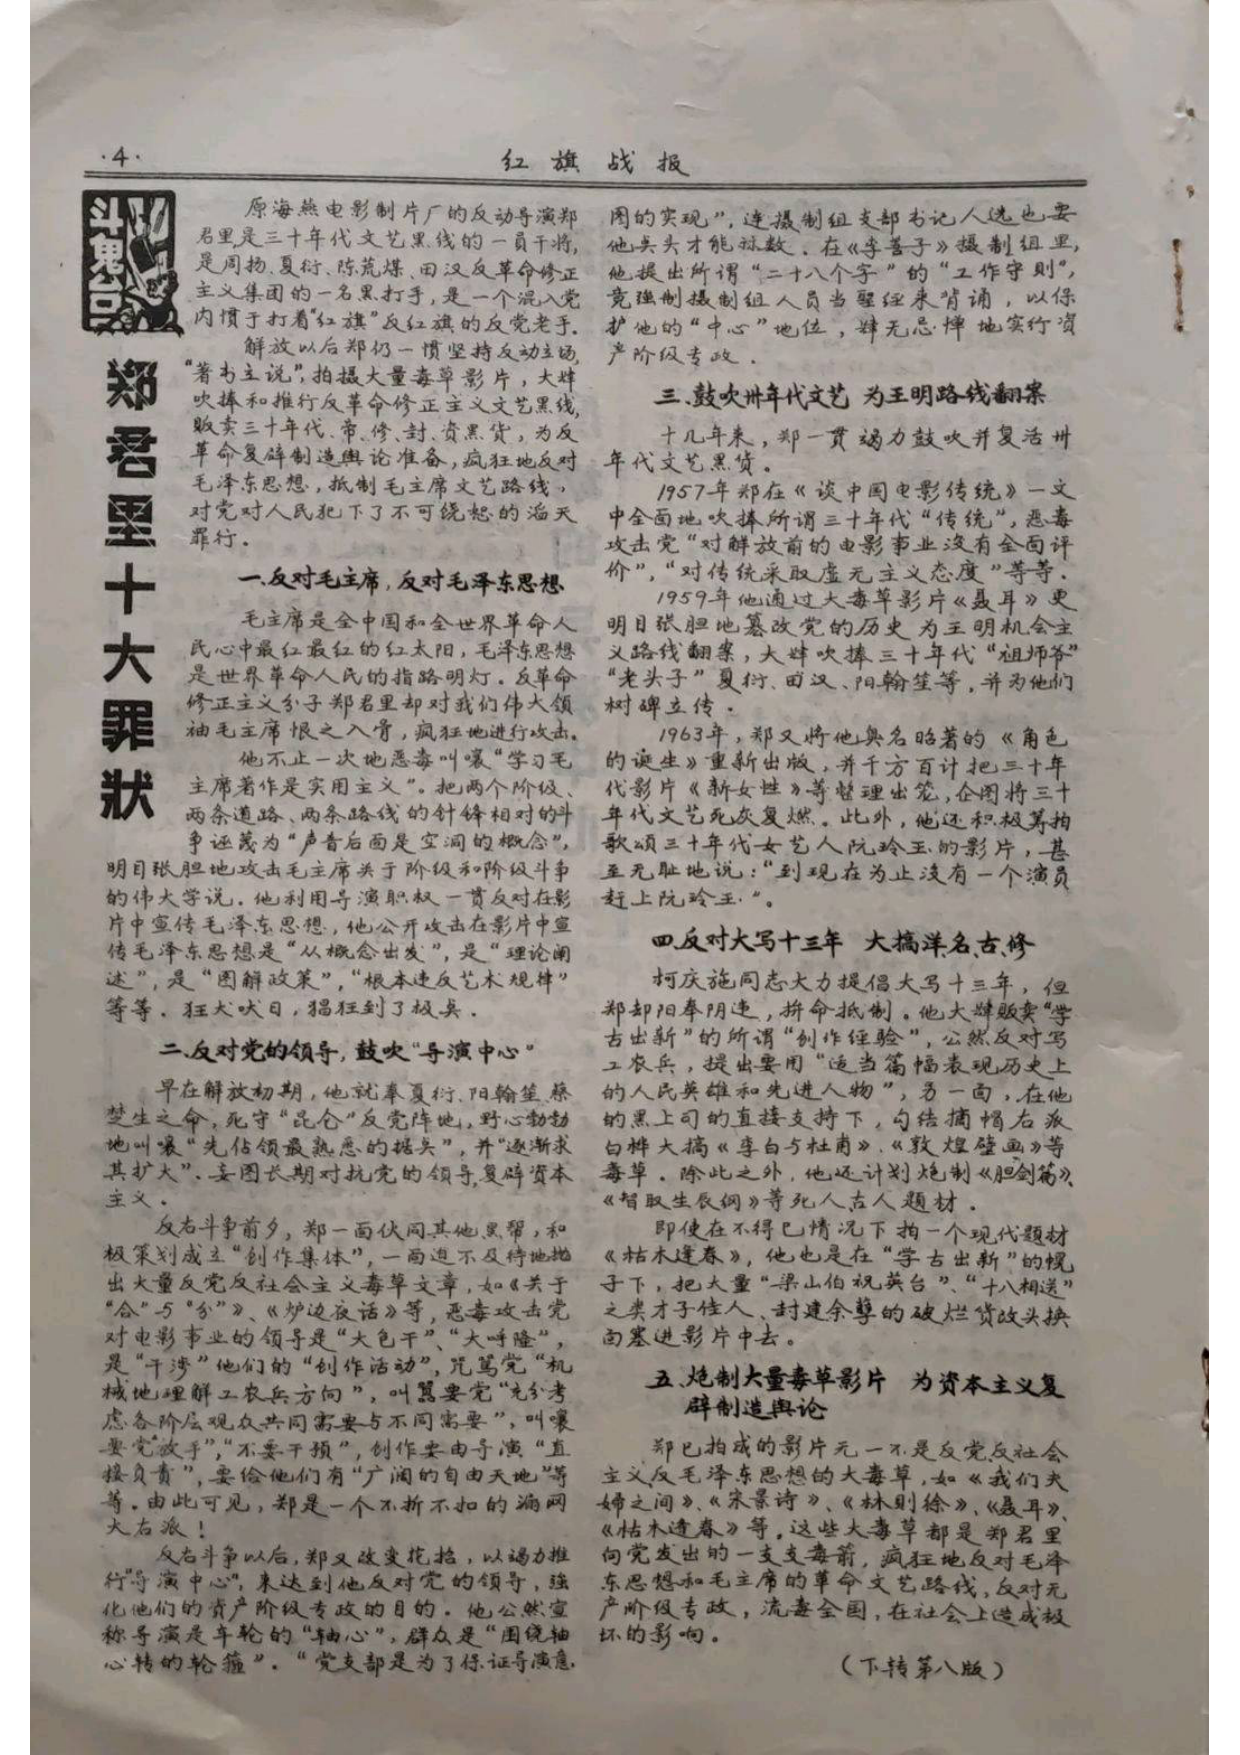 ·4·
红旗战报
斗鬼台
郑君里十大罪状
原海燕电影制片厂的反动导演郑
君里,是三十年代文艺黑线的一员干将,
是周扬、夏衍、陈荒煤、田汉反革命修正
主义集团的一名黑打手,是一个混入党
内惯于打着“红旗”反红旗的反党老手.
解放以后郑仍一惯坚持反动立场,
“著书立说”,拍摄大量毒草影片,大肆
吹捧和推行反革命修正主义文艺黑线,
贩卖三十年代、帝、修、封、资黑货,为反
革命复辟制造舆论准备,疯狂地反对
毛泽东思想,抵制毛主席文艺路线,
对党对人民犯下了不可饶恕的滔天
罪行.
一、反对毛主席,反对毛泽东思想
毛主席是全中国和全世界革命人
民心中最红最红的红太阳,毛泽东思想
是世界革命人民的指路明灯.反革命
修正主义分子郑君里却对我们伟大领
袖毛主席恨之入骨,疯狂地进行攻击.
他不止一次地恶毒叫嚷“学习毛
主席著作是实用主义”.把两个阶级、
两条道路、两条路线的针锋相对的斗
争诬蔑为“声音后面是空洞的概念”,
明目张胆地攻击毛主席关于阶级和阶级斗争
的伟大学说.他利用导演职权一贯反对在影
片中宣传毛泽东思想,他公开攻击在影片中宣
传毛泽东思想是“从概念出发”,是“理论阐
述”,是“图解政策”,“根本违反艺术规律”
等等.狂犬吠日,猖狂到了极矣.
二、反对党的领导,鼓吹“导演中心”
早在解放初期,他就奉夏衍、阳翰笙、蔡
楚生之命,死守“昆仑”反党阵地,野心勃勃
地叫嚷“先佔领最熟悉的据矣”,并“逐渐求
其扩大”.妄图长期对抗党的领导,复辟资本
主义.
反右斗争前夕,郑一面伙同其他黑帮,积
极策划成立“创作集体”,一面迫不及待地抛
出大量反党反社会主义毒草文章,如《关于
“合”与“分”》、《炉边夜话》等,恶毒攻击党
对电影事业的领导是“大包干”、“大呼隆”,
是“干涉”他们的“创作活动”,咒骂党“机
械地理解工农兵方向”,叫嚣要党“充分考
虑各阶层观众共同需要与不同需要”,叫嚷
要党“放手”,“不要干预”,创作要由导演“直
接负责”,要给他们有“广阔的自由天地”等
等.由此可见,郑是一个不折不扣的漏网
大右派!
反右斗争以后,郑又改变花招,以竭力推
行“导演中心”,来达到他反对党的领导,强
化他们的资产阶级专政的目的.他公然宣
称导演是车轮的“轴心”,群众是“围绕轴
心转的轮箍”.“党支部是为了保证导演意
图的实现”,连摄制组支部书记人选也要
他矣头才能祘数.在《李善子》摄制组里,
他提出所谓“二十八个字”的“工作守则”,
竟强制摄制组人员当圣经来背诵,以保
护他的“中心”地位,肆无忌惮地实行资
产阶级专政.
三、鼓吹卅年代文艺 为王明路线翻案
十几年来,郑一贯竭力鼓吹并复活卅
年代文艺黑货。
1957年郑在《谈中国电影传统》一文
中全面地吹捧所谓三十年代“传统”,恶毒
攻击党“对解放前的电影事业没有全面评
价”,“对传统采取虚无主义态度”等等.
1959年他通过大毒草影片《聂耳》更
明目张胆地篡改党的历史为王明机会主
义路线翻案,大肆吹捧三十年代“祖师爷”
“老头子”夏衍、田汉、阳翰笙等,并为他们
树碑立传.
1963年,郑又将他臭名昭著的《角色
的诞生》重新出版,并千方百计把三十年
代影片《新女性》等整理出笼,企图将三十
年代文艺死灰复燃。此外,他还积极筹拍
歌颂三十年代女艺人阮玲玉的影片,甚
至无耻地说:“到现在为止没有一个演员
赶上阮玲玉.”。
四、反对大写十三年 大搞洋、名、古、修
柯庆施同志大力提倡大写十三年,但
郑却阳奉阴违,拚命抵制.他大肆贩卖“学
古出新”的所谓“创作经验”,公然反对写
工农兵,提出要用“适当篇幅表现历史上
的人民英雄和先进人物”,另一面,在他
的黑上司的直接支持下,勾结摘帽右派
白桦大搞《李白与杜甫》、《敦煌壁画》等
毒草.除此之外,他还计划炮制《胆剑篇》、
《智取生辰纲》等死人古人题材.
即使在不得已情况下拍一个现代题材
《枯木逢春》,他也是在“学古出新”的幌
子下,把大量“梁山伯祝英台”、“十八相送”
之类才子佳人、封建余孽的破烂货改头换
面塞进影片中去。
五、炮制大量毒草影片 为资本主义复
辟制造舆论
郑已拍成的影片无一不是反党反社会
主义反毛泽东思想的大毒草,如《我们夫
妇之间》、《宋景诗》、《林则徐》、《聂耳》、
《枯木逢春》等,这些大毒草都是郑君里
向党发出的一支支毒箭,疯狂地反对毛泽
东思想和毛主席的革命文艺路线,反对无
产阶级专政,流毒全国,在社会上造成极
坏的影响。
(下转第八版)